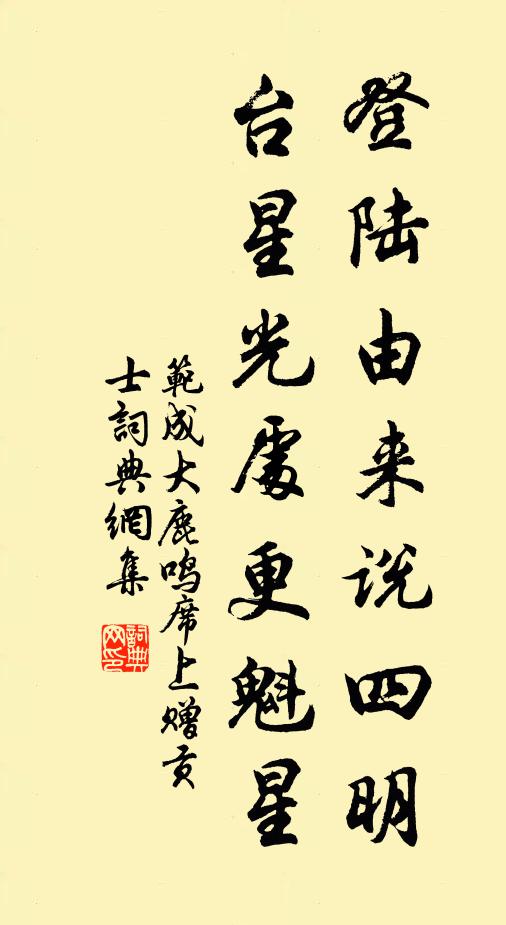 登陆由来说四明
台星光处更魁星
範成大鹿鸣席上赠贡
士詞典網集
詞典
网印